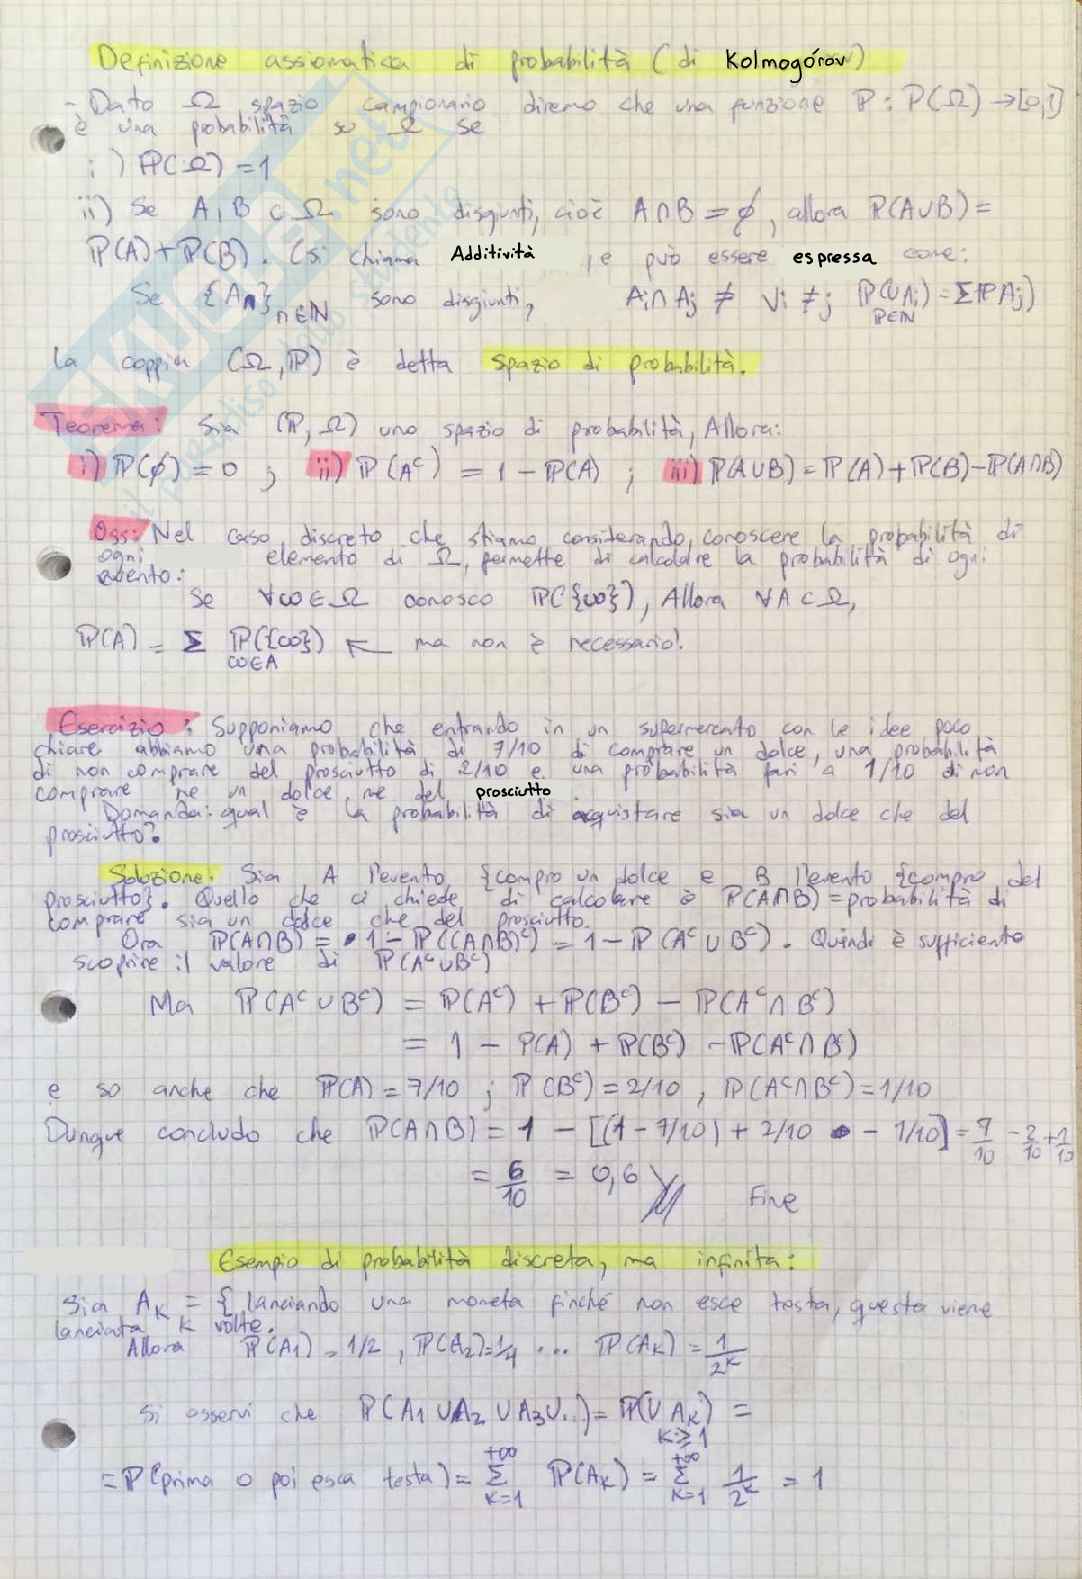 Definizione assiomatica di probabilità (di Kolmogórov)
- Dato Ω spazio campionario diremo che una funzione ℙ: P(Ω) → [0,1]
è una probabilità su Ω se
i) ℙ(Ω) = 1
ii) Se A, B ⊂ Ω sono disgiunti, cioè A∩B = ∅, allora ℙ(A∪B) =
ℙ(A) + ℙ(B). (Si chiama Additività, e può essere espressa come:
Se {An}n∈ℕ sono disgiunti, Ai∩Aj ≠ ∀i ≠ j ℙ(∪Ai) = Σℙ Aj)
P∈ℕ
La coppia (Ω, ℙ) è detta spazio di probabilità.
Teorema: Sia (ℙ, Ω) uno spazio di probabilità, Allora:
i) ℙ(∅) = 0 ; ii) ℙ(Aᶜ) = 1 - ℙ(A) ; iii) ℙ(A∪B) = ℙ(A) + ℙ(B) - ℙ(A∩B)
Oss: Nel caso discreto che stiamo considerando, conoscere la probabilità di
ogni elemento di Ω, permette di calcolare la probabilità di ogni
evento:
Se ∀ω∈Ω conosco ℙ({ω}), Allora ∀A⊂Ω,
ℙ(A) = Σ ℙ({ω}) ← ma non è necessario!
ω∈A
Esercizio: Supponiamo che entrando in un supermercato con le idee poco
chiare abbiamo una probabilità di 7/10 di comprare un dolce, una probabilità
di non comprare del prosciutto di 2/10 e una probabilità pari a 1/10 di non
comprare ne un dolce ne del prosciutto
Domanda: qual è la probabilità di acquistare sia un dolce che del
prosciutto?
Soluzione: Sia A l'evento {compro un dolce e B l'evento {compro del
prosciutto}. Quello che ci chiede di calcolare è ℙ(A∩B) = probabilità di
comprare sia un dolce che del prosciutto.
Ora ℙ(A∩B) = 1 - ℙ((A∩B)ᶜ) = 1 - ℙ(Aᶜ∪Bᶜ). Quindi è sufficiente
scoprire il valore di ℙ(Aᶜ∪Bᶜ)
Ma ℙ(Aᶜ∪Bᶜ) = ℙ(Aᶜ) + ℙ(Bᶜ) - ℙ(Aᶜ∩Bᶜ)
= 1 - ℙ(A) + ℙ(Bᶜ) - ℙ(Aᶜ∩Bᶜ)
e so anche che ℙ(A) = 7/10 ; ℙ(Bᶜ) = 2/10 , ℙ(Aᶜ∩Bᶜ) = 1/10
Dunque concludo che ℙ(A∩B) = 1 - [(1 - 7/10) + 2/10 - 1/10] = 7/10 - 2/10 + 1/10
= 6/10 = 0,6
Fine
Esempio di probabilità discreta, ma infinita:
Sia AK = { lanciando una moneta finché non esce testa, questa viene
lanciata K volte.
Allora ℙ(A1) = 1/2 , ℙ(A2) = 1/4 ... ℙ(AK) = 1/2ᴷ
Si osservi che ℙ(A1 ∪ A2 ∪ A3 ∪ ..) = ℙ(∪ AK) =
K≥1
= ℙ(prima o poi esca testa) = Σ K=1 +∞ ℙ(AK) = Σ K=1 +∞ 1/2ᴷ = 1